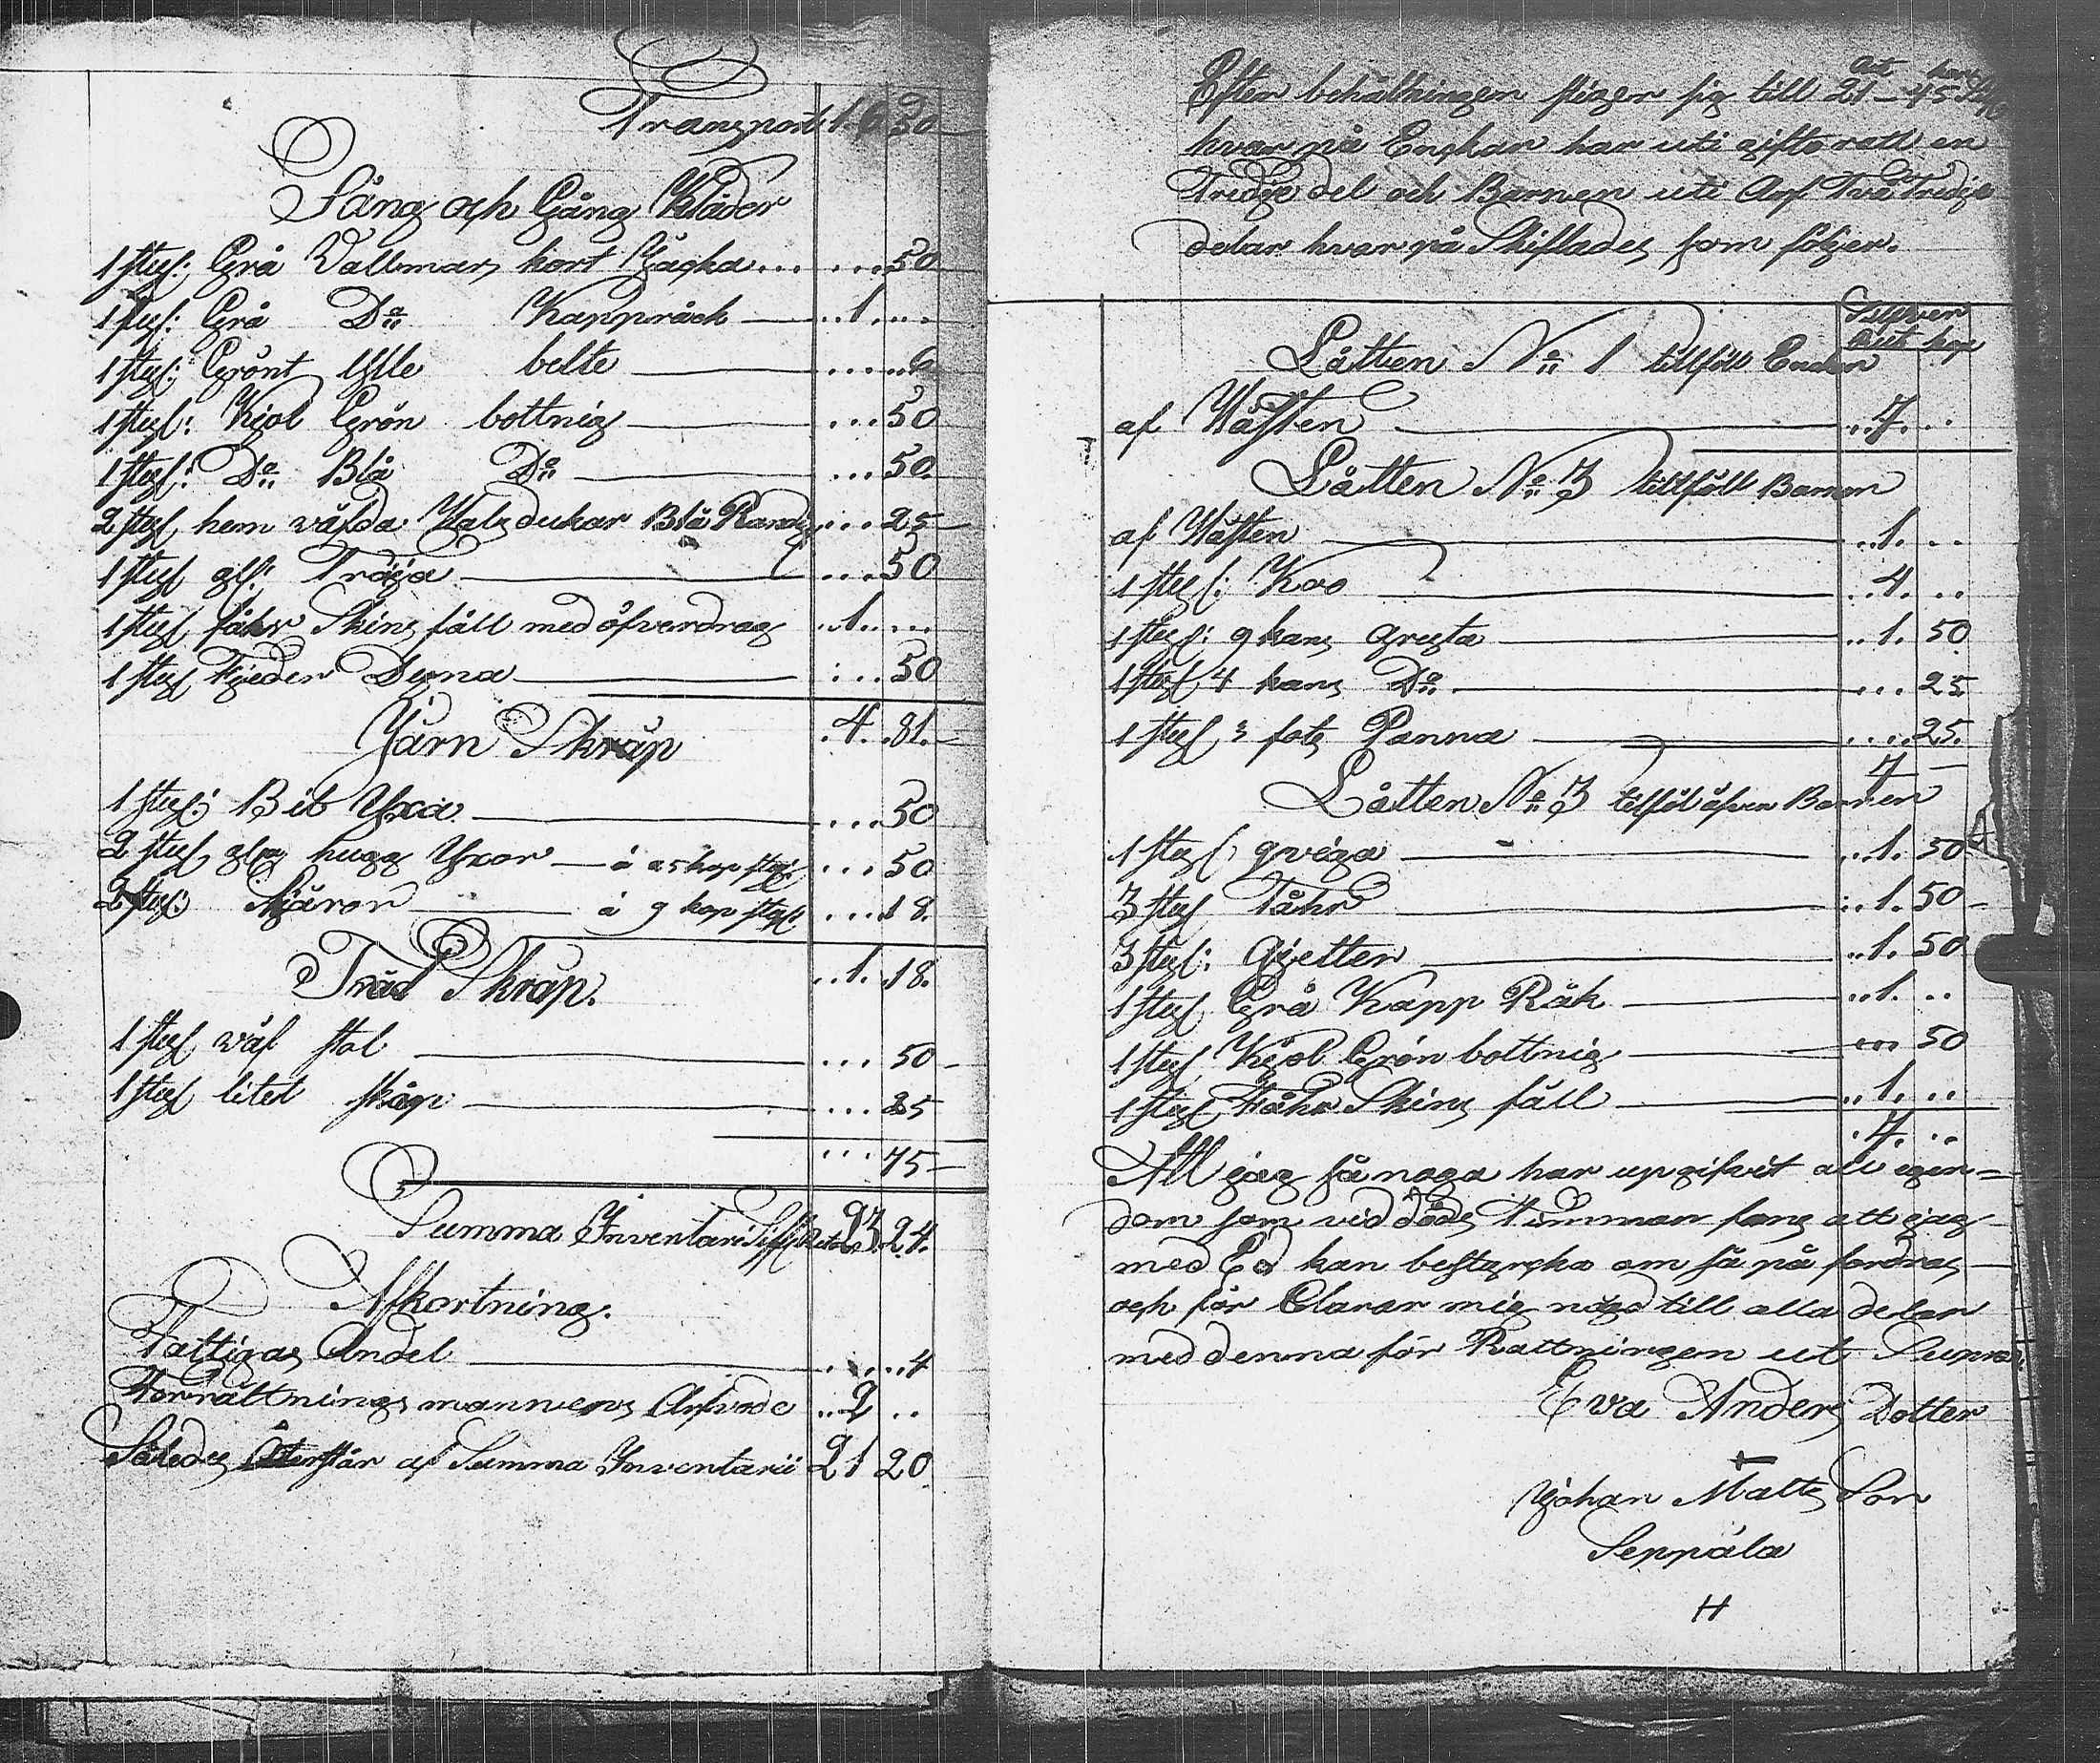 Transport 16 50
Säng och Gång Kläder
1 styk: Grå Vallmars kort Tjäcka ... ... 50
1 styk: Grå Do Kappråck ..1. ...
1 styk: Grönt Ylle belte .... 6
1 styk: Kjol Grön bottnig ... 50
1 styk: Do Blå Do ... 50.
2 styk hem väfda Halsdukar Blå Randig ... 25
1 styk gl: Tröja ... 50
1 styk fåhr Skins fäll med öfverdrag ..1. ...
1 styk Fjeder Dyna ... 50
.4. .81.
Järn Skrap
1 styk: Bil Yxa ... 50
2 styk gla hugg Yxor à 25 kop styk ... 50
2 styk: Skjäror à 9 kop styk ... 18.
..1. 18.
Träd Skrap.
1 styk väf stol ... 50
1 styk litet skåp ... 25
... 75
Summa Inventari 23. 24.
Afkortning.
Fattigas Andel .... 4
Förrättnings mannens Arfvode ..2 ..
Således Återstår af Summa Inventarii 21 20
Rut kop
Efter behållningen stiger sig till 21 - 45
hvar på Enskan har uti gifto rätt en
Tredje del och Barnen uti Arf Två Tredje
delar hvar på Skiftades som följer.
Sillfver
Rut kop
Låtten No 1 tillföll Enskan
af Hästen ..7. ..
Låtten No 3 tillföll Barnen
af Hästen ..1. ..
1 styk: Koo ..4. ..
1 styk: 9 kans Gryta ..1. 50
1 styk 4 kans Do ... 25
1 styk 3 fots Panna .... 25.
7
Låtten No 3 tillföl äfven Barnen
1 styk qviga ..1. 50
3 styk Fåhr ..1. 50
3 styk: Gjetter ..1. 50
1 styk Grå Kapp Råk ..1. ..
1 styk Kjol Grön bottnig ... 50
1 styk Fåhr Skins fäll ..1. ..
.7. ..
Att jag så noga har upgifvit all egen=
dom som vid döds Timman fans att jag
med Ed kan bestyrcka om så på fordras
och för Clarar mig nögd till alla delar
med denna för Rättningen ut Supra
Eva Anders Dotter
Johan Matts Son
Seppälä
H